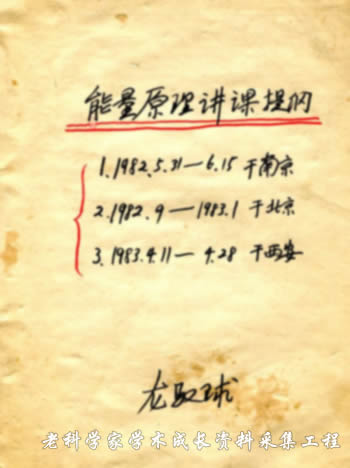 能量原理讲课提纲
1.1982.5.31—6.15 于南京
2.1982.9—1983.1 于北京
3.1983.4.11—4.28 于西安
龙驭球
老科学家学术成长资料采集工程